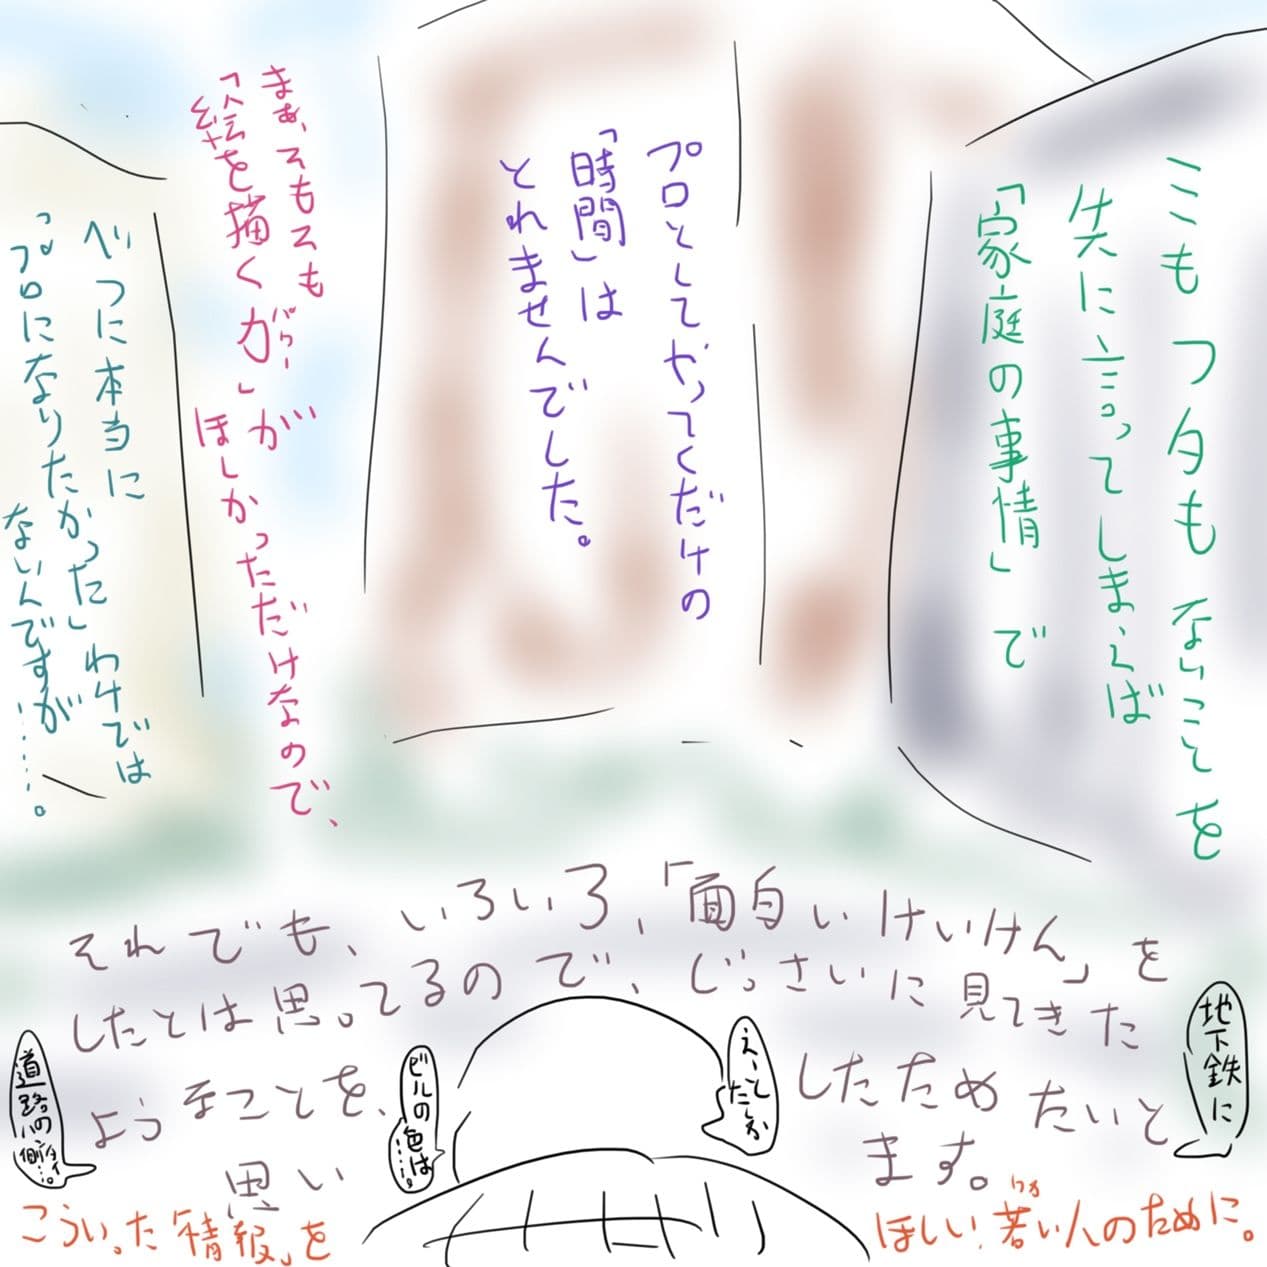 ミもフタもないことを
先に言ってしまえば
「家庭の事情」で
プロとしてやってくだけの
「時間」は
とれませんでした。
まぁ、そもそも
「絵を描く力」が
ほしかっただけなので、
べつに本当に
「プロになりたかった」わけでは
ないんですが……。
それでも、いろいろ、「面白いけいけん」を
したとは思ってるので、じっさいに見てきた
ようなことを、したためたいと
思います。
地下鉄に
えーと
たしか
ビルの色は……。
道路の
こういった「情報」を
ほしい!若い人のために。
わか